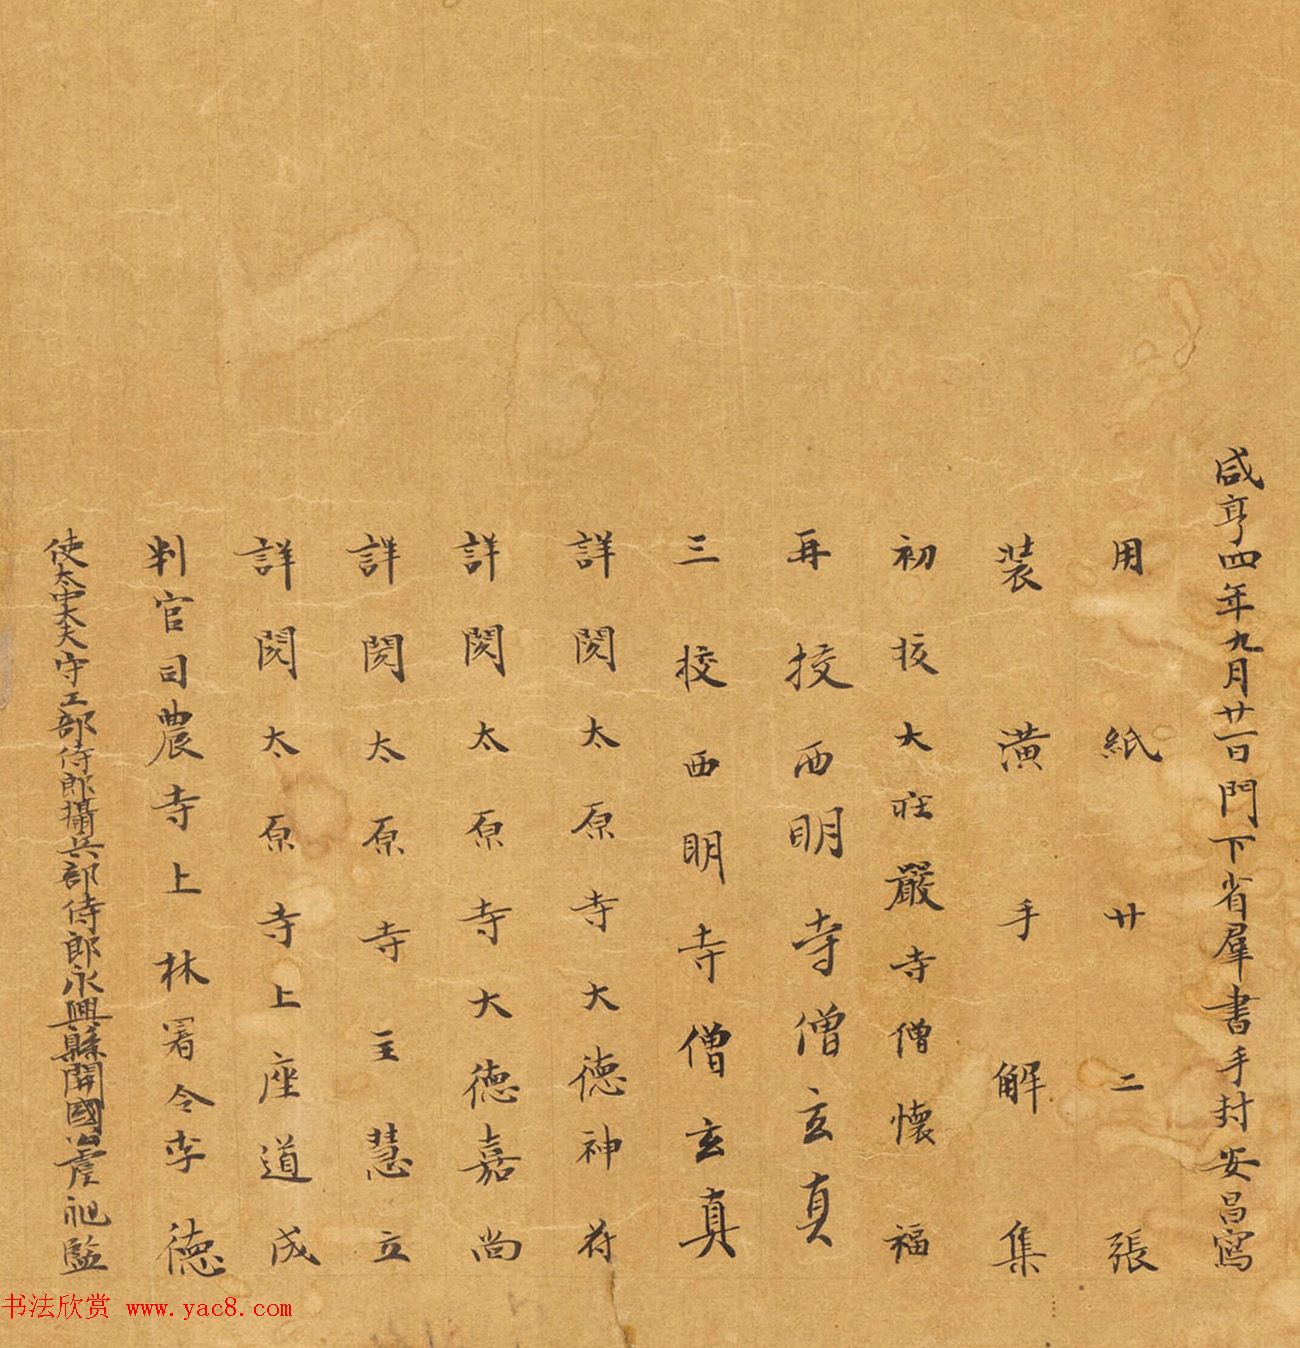 咸亨四年九月廿一日門下省羣書手封安昌寫
用紙廿二張
裝潢手解集
初挍大莊嚴寺僧懷福
再挍西明寺僧玄真
三挍西明寺僧玄真
詳閱太原寺大德神苻
詳閱太原寺大德嘉尚
詳閱太原寺主慧立
詳閱太原寺上座道成
判官司農寺上林署令李德
使太中大夫守工部侍郎攝兵部侍郎永興縣開國公虞昶監
书法欣赏 www.yac8.com